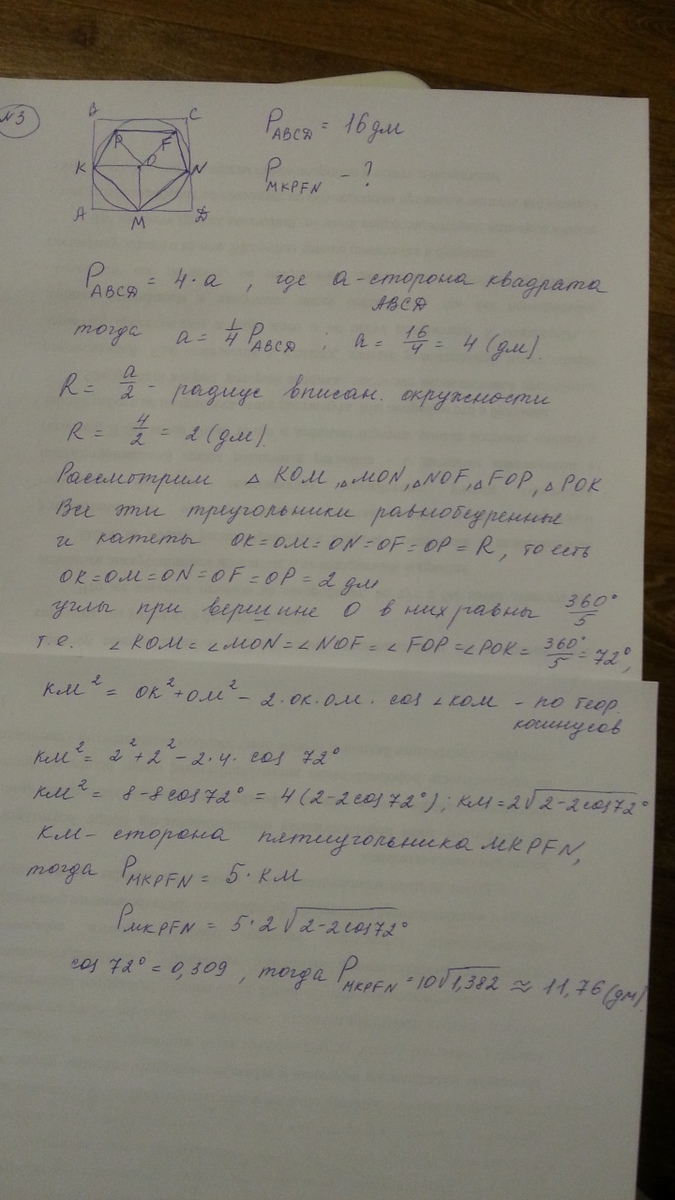 №3
B C
P F
K O N
A M D
P_ABCD = 16 дм
P_MKPFN - ?
P_ABCD = 4·a , где a - сторона квадрата
ABCD
тогда a = 1/4 P_ABCD ; a = 16/4 = 4 (дм).
R = a/2 - радиус вписан. окружности
R = 4/2 = 2 (дм).
Рассмотрим △ KOM, △MON, △NOF, △FOP, △POK
Все эти треугольники равнобедренные
и катеты OK=OM=ON=OF=OP=R, то есть
OK=OM=ON=OF=OP=2 дм
углы при вершине O в них равны 360°/5
т.е. ∠KOM=∠MON=∠NOF=∠FOP=∠POK= 360°/5 = 72°,
KM² = OK²+OM² - 2·OK·OM· cos ∠KOM - по теор.
косинусов
KM² = 2²+2² - 2·4· cos 72°
KM² = 8-8cos72° = 4(2-2cos72°); KM=2√(2-2cos72°)
KM - сторона пятиугольника MKPFN,
тогда P_MKPFN = 5·KM
P_MKPFN = 5·2√(2-2cos72°)
cos 72° = 0,309 , тогда P_MKPFN = 10√1,382 ≈ 11,76 (дм).